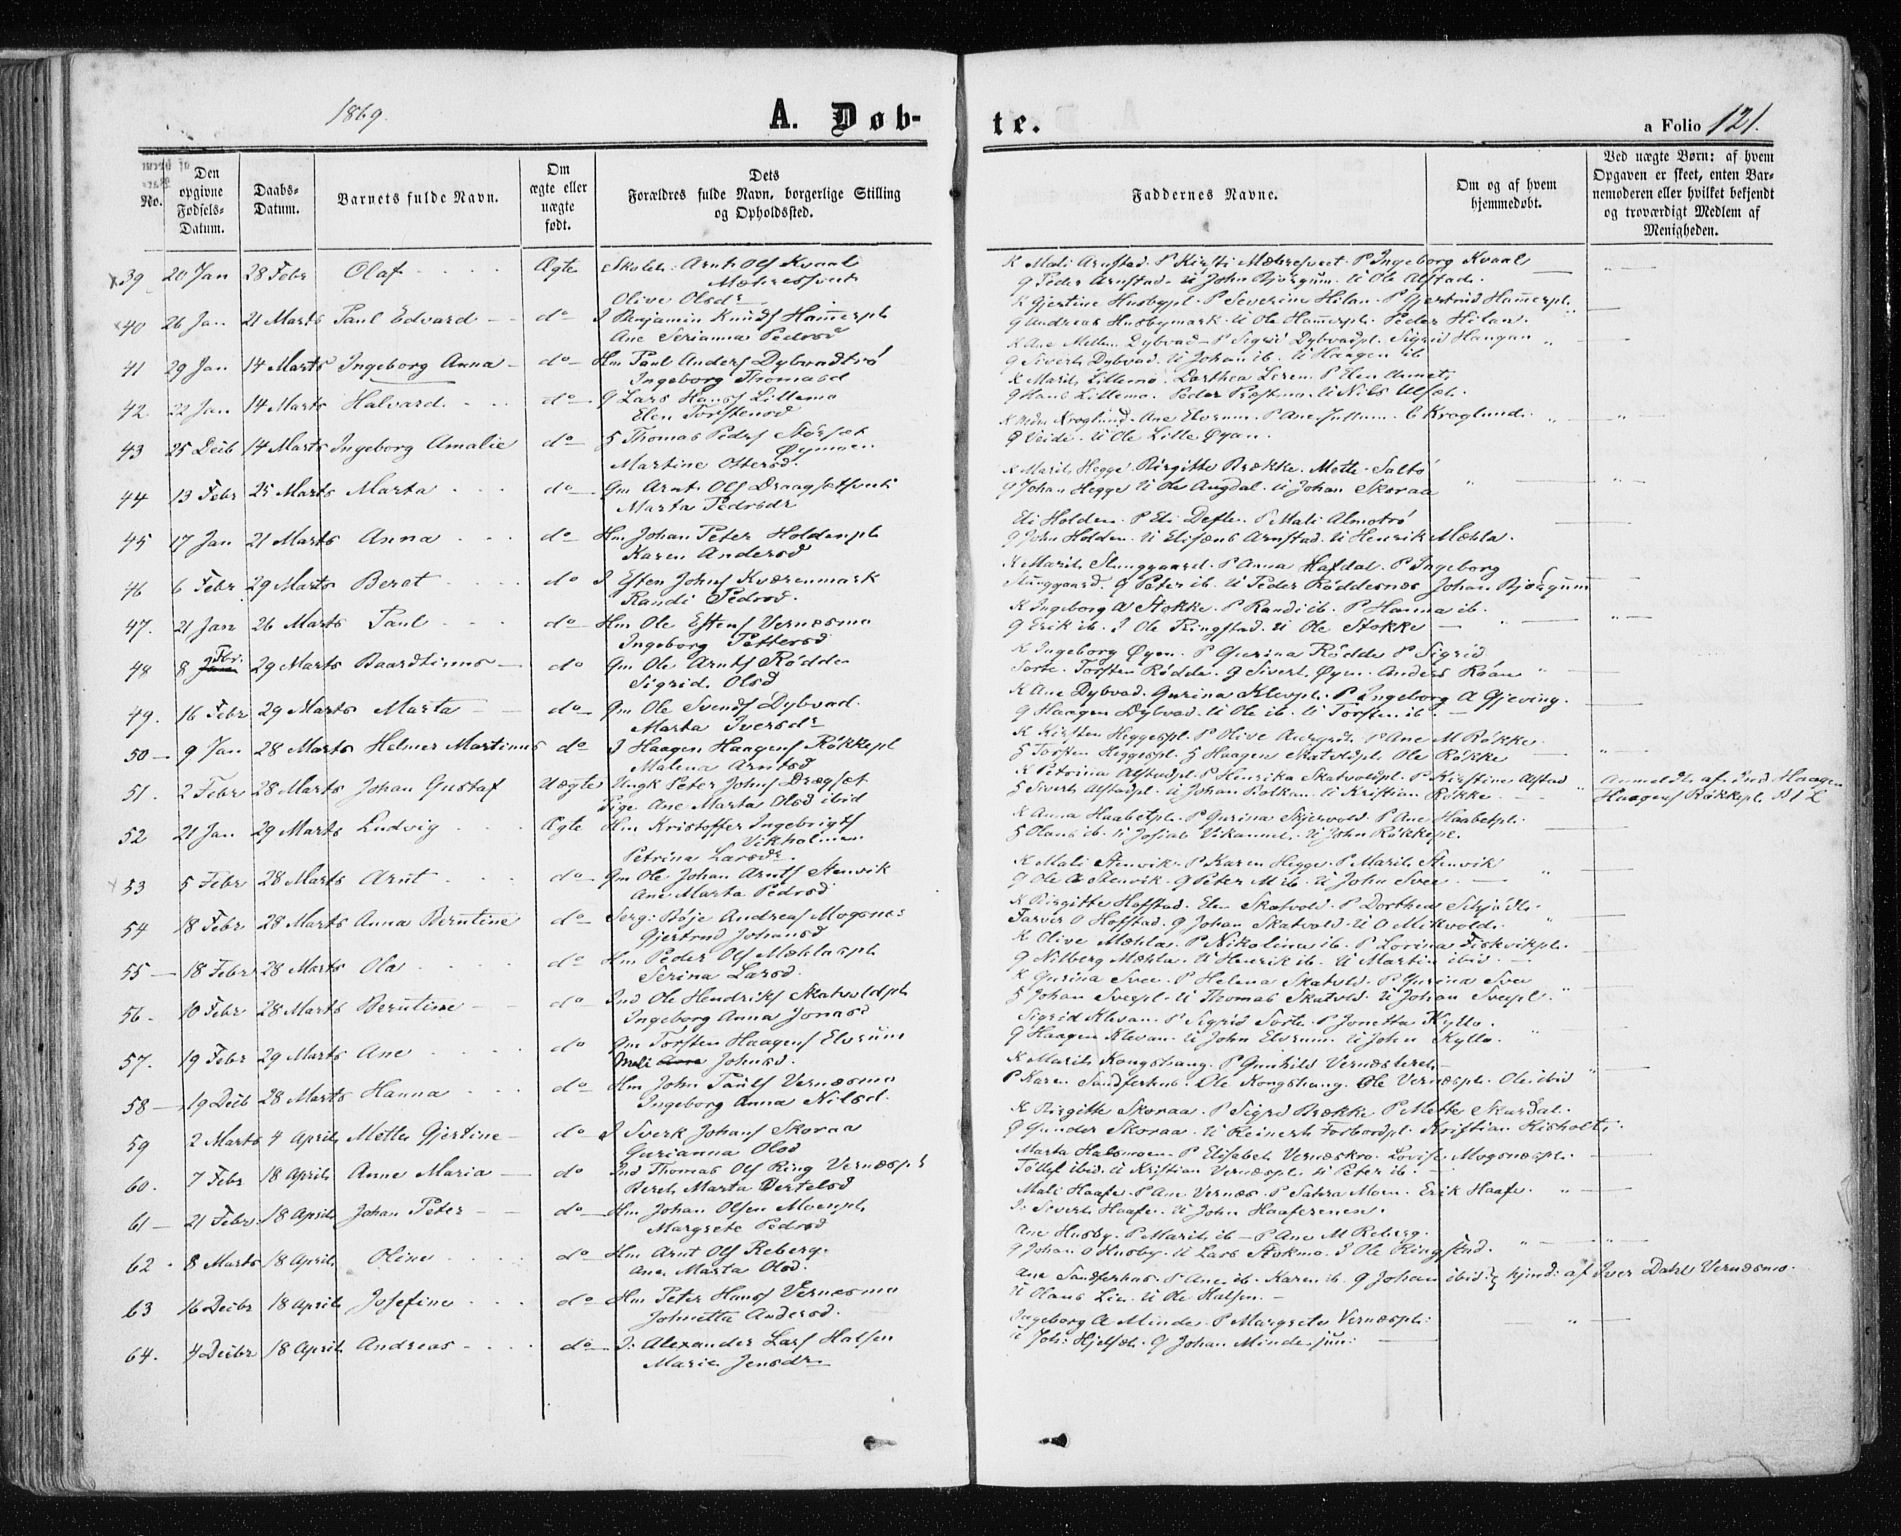 1869.
A. Døb-
te.
a Folio 121.
No.
Den opgivne Fødsels-Datum.
Daabs-Datum.
Barnets fulde Navn.
Om ægte eller uægte født.
Dets Forældres fulde Navn, borgerlige Stilling og Opholdssted.
Faddernes Navne.
Om og af hvem hjemmedøbt.
Ved uægte Børn: af hvem Opgaven er skeet, enten Barnemoderen eller hvilket bekjendt og troværdigt Medlem af Menigheden.
39 20 Jan 28 Febr Olaf Ægte Arnt Ols Kvaal
Olive Olsdr
K Mali Arnstad. P Kirsti P Ingeborg Kvaal
G Peder Arnstad. U John U Ole Alstad.
40 26 Jan 21 Marts Paul Edvard do I Benjamin Knuds Hammerpl
Ane Serianna Pedrsd
K Gjertine Husbypl. P Severine Hilan. P Gjertrud Hammerpl.
G Andreas Husbymark. U Ole Hammerpl. Peder Hilan.
41 29 Jan 14 Marts Ingeborg Anna do Hm Paul Anders Dybvadtrø
Ingeborg Thomasd
K Ane Dybvad P Sigrid Dybvadpl. Sigrid Haugan
G Sivert Dybvad. U Johan ib. U Haagen ib.
42. 22 Jan 14 Marts Halvard do G Lars Hans Lillemo
Elen Torstensd
K Marit Lillemo. Dorthea P Elen
G Hans Lillemo. Peder U Nils
43 25 Decb 14 Marts Ingeborg Amalie do S Thomas Peds
Martine Ottersd.
Kroglund. Ane Elvrum. P Ane C Kroglund.
U Ole Lille Øyan.
44 13 Febr 25 Marts Marta do Gm Arnt Ols
Marta Pedrsdr
K Marit Hegge. Birgitte Brække. Mette Saltø
G Johan Hegge U Ole Augdal. U Johan Skoraa
45 17 Jan 21 Marts Anna do Hm Johan Peter Holdenpl
Karen Andersd
Eli Holden. P Eli P Mali Almotrø
G John Holden. U Arnstad. U Henrik Mæhla.
46 6 Febr 29 Marts Beret do I Esten Johns Kværnmark
Randi Pedrsd.
K Marit P Anna Hafdal. P Ingeborg
G Peter ib. U Peder Røddesnes Johan
47. 21 Jan 26 Marts Paul do Hm Ole Estens Vernæsmo
Ingeborg Pettersd
K Ingeborg A Stokke. P Randi ib. P Hanna ib.
G Erik ib. I Ole Ringstad. U Ole Stokke
48 8 Fbr. 29 Marts Baardtinus do Gm Ole Arnts Rødde
Sigrid Olsd
K Ingeborg Øyen. P Gurina Rødde P Sigrid
Sorte. Torsten Rødde. G Sivert Øyen. Anders Røan
49. 16 Febr 29 Marts Marta do Gm Ole Svends Dybvad.
Marta Iversdr
K Ane Dybvad. Gurina Klevpl. P Ingeborg A Gjeving.
G Haagen Dybvad. U Ole ib. U Torsten ib.
50 9 Jan 28 Marts Helmer Martinus do I Haagen Haagens Røkkepl
Malena Arntsd
K Kirsten Heggespl. P Olive P Ane M Røkke
S Torsten Heggespl. S Haagen Skatvoldpl. Ole Røkke
51. 2 Febr 28 Marts Johan Gustaf Uægte Ungk Peter Johns
Pige Ane Marta Olsd ibid
K Petrina Alstadpl. P Henrika Skatvoldpl. P Kirstine Alstad
S Sivert Alstadpl. U Johan U Kristian Røkke
Anmeldt af Ind Haagen
Haagens Røkkepl
52 21 Jan 29 Marts Ludvig Ægte Hm Kristoffer Ingebrigts
Vikholmen
Petrina Larsdr
K Anna Haabetpl. P Gurina Skjervold P Ane Haabetpl.
S Olaus ib. U Josias Vikammel. U John Røkkepl.
53 5 Febr 28 Marts Arnt do Gm Ole Johan Arnts Stenvik
Ane Marta Pedrsd
K Mali Stenvik. P Karen Hegge. P Marit Stenvik
G Ole A Stenvik. G Peter M ib. U John Svee
54 18 Febr 28 Marts Anna Berntine do Serg: Bøje Andreas Mogsnes
Gjertrud Johansd
K Birgitte Hofstad. Elen Skatvold. P Dorthea
Farver O Hofstad. G Johan Skatvold. U O
55 18 Febr 28 Marts Ola do Hm Peder Ols Mæhlaspl
Serina Larsd.
K Olive Mæhla. P Nikolina ib. P Lovina Fiskvikpl.
G Nilberg Mæhla. U Henrik ib. U Martin ibid.
56. 10 Febr 28 Marts Berntine do Ind Ole Hendriks Skatvoldpl
Ingeborg Anna Jonasd
K Gurina Svee. P Helena Skatvold. P Gurina Svee
S Johan Sveepl. U Thomas Skatvold. U Johan Sveepl.
57. 19 Febr 29 Marts Ane do Gm Torsten Haagens Elvrum
Mali Johnsd.
Sigrid Klevan. P Sigrid Sorte. P Jonetta Kyllo.
G Haagen Klevan. U John Elvrum. U John Kyllo.
58 19 Decb 28 Marts Hanna do Hm John Pauls Vernæsmo
Ingeborg Anna Nilsd.
K Marit Kongshaug. P Gunhild
P Karen Sandferhus. Ole Kongshaug. Ole Vernæspl. Ole ibid
59 2 Marts 4 April Mette Gjertine do I Sverk Johans Skoraa
Gurianna Olsd
K Birgitte Skoraa. P Sigrd Brække P Mette Skurdal.
G Gunder Skoraa. U Reinert Forbordpl. Kristian
60. 7 Febr 18 April Anne Maria do Ind Thomas Ols Ring Vernæspl
Beret Marta Bertelsd
Marta Halsmoen. P Elisabet Vernæskro. Lovise Mogsnæspl.
ibid. U Kristian Vernæspl. U Peter ib.
61 21 Febr 18 April Johan Peter do Hm Johan Olsen Moenpl.
Margrete Pedrsd
Mali Haafe. P Ane Vernæs. P Moen. Erik Haafe.
I: Sivert Haafe. U John
62 8 Marts 18 April Oline do Hm Arnt Ols Reberg.
Ane Marta Olsd.
Ane Husby. P Marit ib P Ane M Reberg.
G Johan O Husby. U Lars Stokmo. I Ole Ringstad.
63 16 Decbr 18 April Josefine do Hm Peter Hans Vernæsmo
Johnetta Andersd.
Ane Sandferhus. P Ane ib. Karen ib. G Johan ibid. hjmd: af Iver Dahl Vernæsmo.
U Olaus Lien. U Ole Halsen.
64. 4 Decbr 18 April Andreas do I: Alexander Lars Halsen
Marit Jensdr
Ingeborg A Minde. P Margrete Vernæspl:
U Joh: G Johan Minde jun: